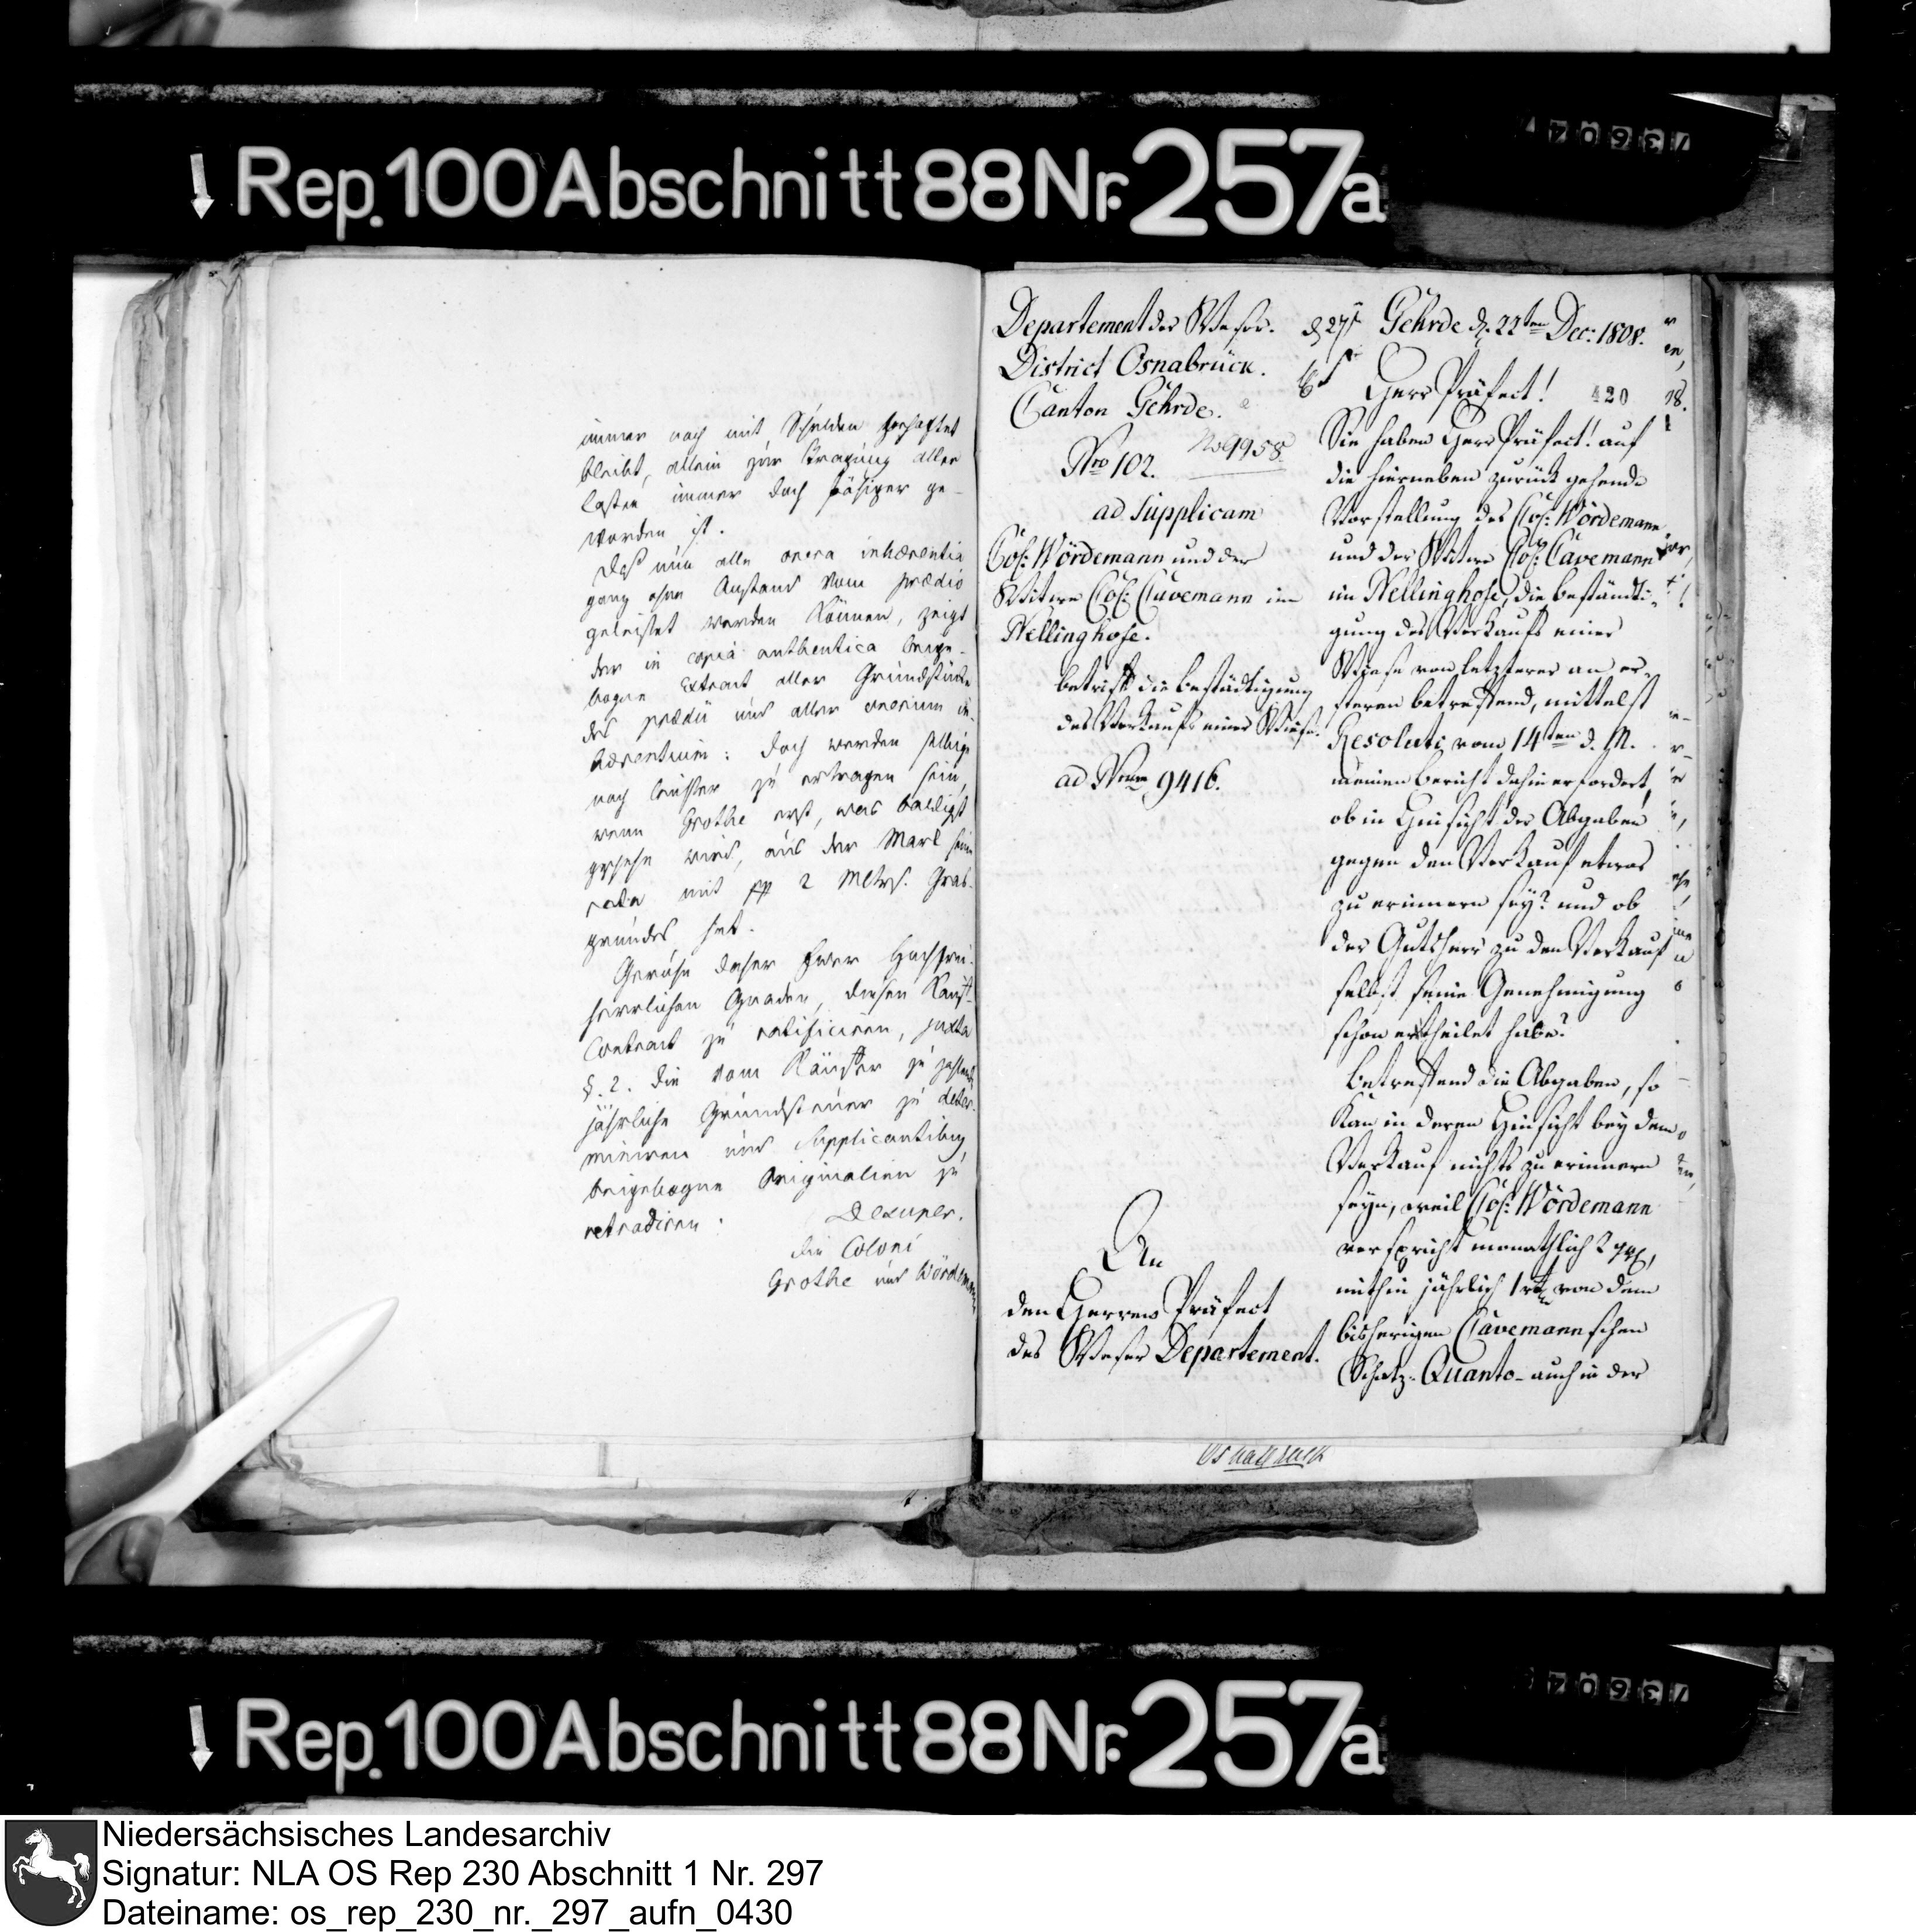 Rep. 100 Abschnitt 88 Nr. 257a
immer noch mit Schulden verhaftet
bleibt, allein zur Tragung aller
Lasten immer doch fähiger ge-
worden ist.
Daß nun alle onera inhærentia
ganz ohne Anstand vom prædio
geleistet werden können, zeigt
der in copia authentica beige-
bogne Extract aller Grundstücke
des prædii und aller onerum in-
hærentium: doch werden selbige
noch leichter zu ertragen sein,
wenn Grothe erst, was baldigst
geschehn wird, aus der Mark seine
rata mit pp 2 Mltrs. Gras-
grundes hat.
Geruhe daher Euer Hochfrei-
herrlichen Gnaden, diesen Kauf-
Contract zu ratificiren, juxta
§. 2. die vom Käufer zu zahlende
jährliche Grundsteuer zu deter-
miniren und Supplicantibus
beigebogne Originalien zu
retradiren.
Desuper.
die Coloni
Grothe und Wördemann
Departement der Weser.
District Osnabrück.
Canton Gehrde.
No 9958
Nro 102.
ad Supplicam
Col: Wördemann und der
Witwe Col: Cavemann im
Hellinghofe.
betrifft die Bestädtigung
des Verkaufs einer Wiese.
ad Num 9416.
An
den Herren Präfect
des Weser Departement.
Gehrde d. 22ten Dec: 1808.
Herr Präfect! 420
Sie haben Herr Präfect! auf
die hierneben zurück gehende
Vorstellung des Col: Wördemann
und der Witwe Col: Cavemann
im Hellinghofe, die Beständti-
gung des Verkaufs einer
Wiese von letzterer an er-
steren betreffend, mittelst
Resoluti vom 14ten d. M.
meinen Bericht dahin erfordert,
ob in Hinsicht der Abgaben
gegen den Verkauf etwas
zu erinnern sey? und ob
der Gutsherr zu den Verkauf
selbst seine Genehmigung
schon ertheilet habe?
Betreffend die Abgaben, so
kan in deren Hinsicht bey dem
Verkauf nichts zu erinnern
seyn, weil Col: Wördemann
verspricht monathlich 2
mithin jährlich 1 von dem
bisherigen Cavemannschen
Schatz-Quanto - auch in der
Osnabrück
Rep. 100 Abschnitt 88 Nr. 257a
Niedersächsisches Landesarchiv
Signatur: NLA OS Rep 230 Abschnitt 1 Nr. 297
Dateiname: os_rep_230_nr._297_aufn_0430